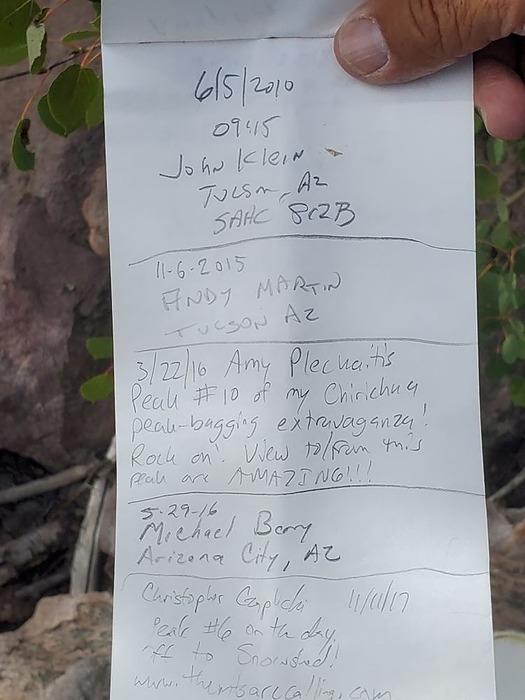 6/5/2010
09:15
John Klein
Tucson, AZ
SAHC
11-6-2015
ANDY MARTIN
TUCSON AZ
3/22/16 Amy Plechaitis
Peak #10 of my Chirichua
peak-bagging extravaganza!
Rock on! View to/from this
peak are AMAZING!!!
5-29-16
Michael Berry
Arizona City, AZ
Christopher 11/11/17
Peak #6 on the day,
off to Snowshed!
www.themtsarecalling.com